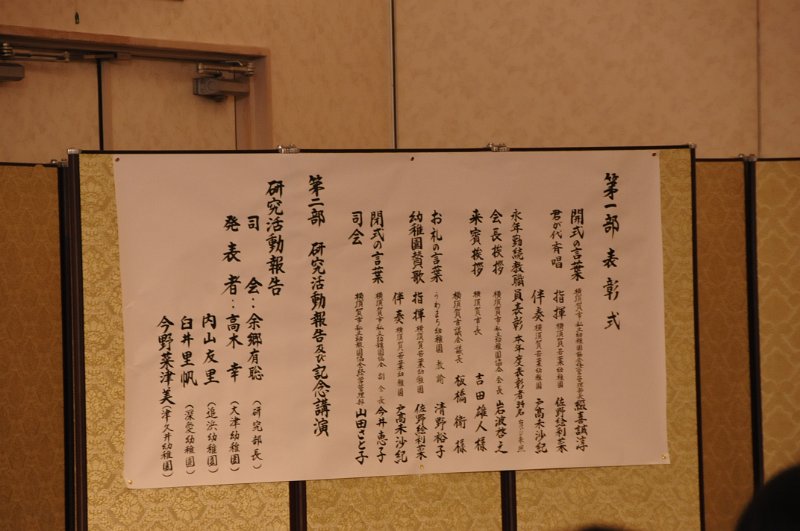 第一部 表彰式
開式の言葉 横須賀市私立幼稚園協会
君が代斉唱 指揮 横須賀若葉幼稚園 佐野絵利菜
伴奏 横須賀若葉幼稚園 戸高未沙紀
永年勤続教職員表彰 本年度表彰者
会長挨拶 横須賀市私立幼稚園協会 会長 岩波啓之
来賓挨拶 横須賀市長 吉田雄人様
横須賀市議会議長 板橋衛様
お礼の言葉 うわまち幼稚園 教諭 清野裕子
幼稚園賛歌 指揮 横須賀若葉幼稚園 佐野絵利菜
伴奏 横須賀若葉幼稚園 戸高未沙紀
閉式の言葉 横須賀市私立幼稚園協会 副会長 今井恵子
司会 横須賀市私立幼稚園協会 山田さと子
第二部 研究活動報告及び記念講演
研究活動報告
司会:余郷有聡(研究部長)
発表者:高木幸(大津幼稚園)
内山友里(追浜幼稚園)
臼井里帆(深愛幼稚園)
今野菜津美(津久井幼稚園)